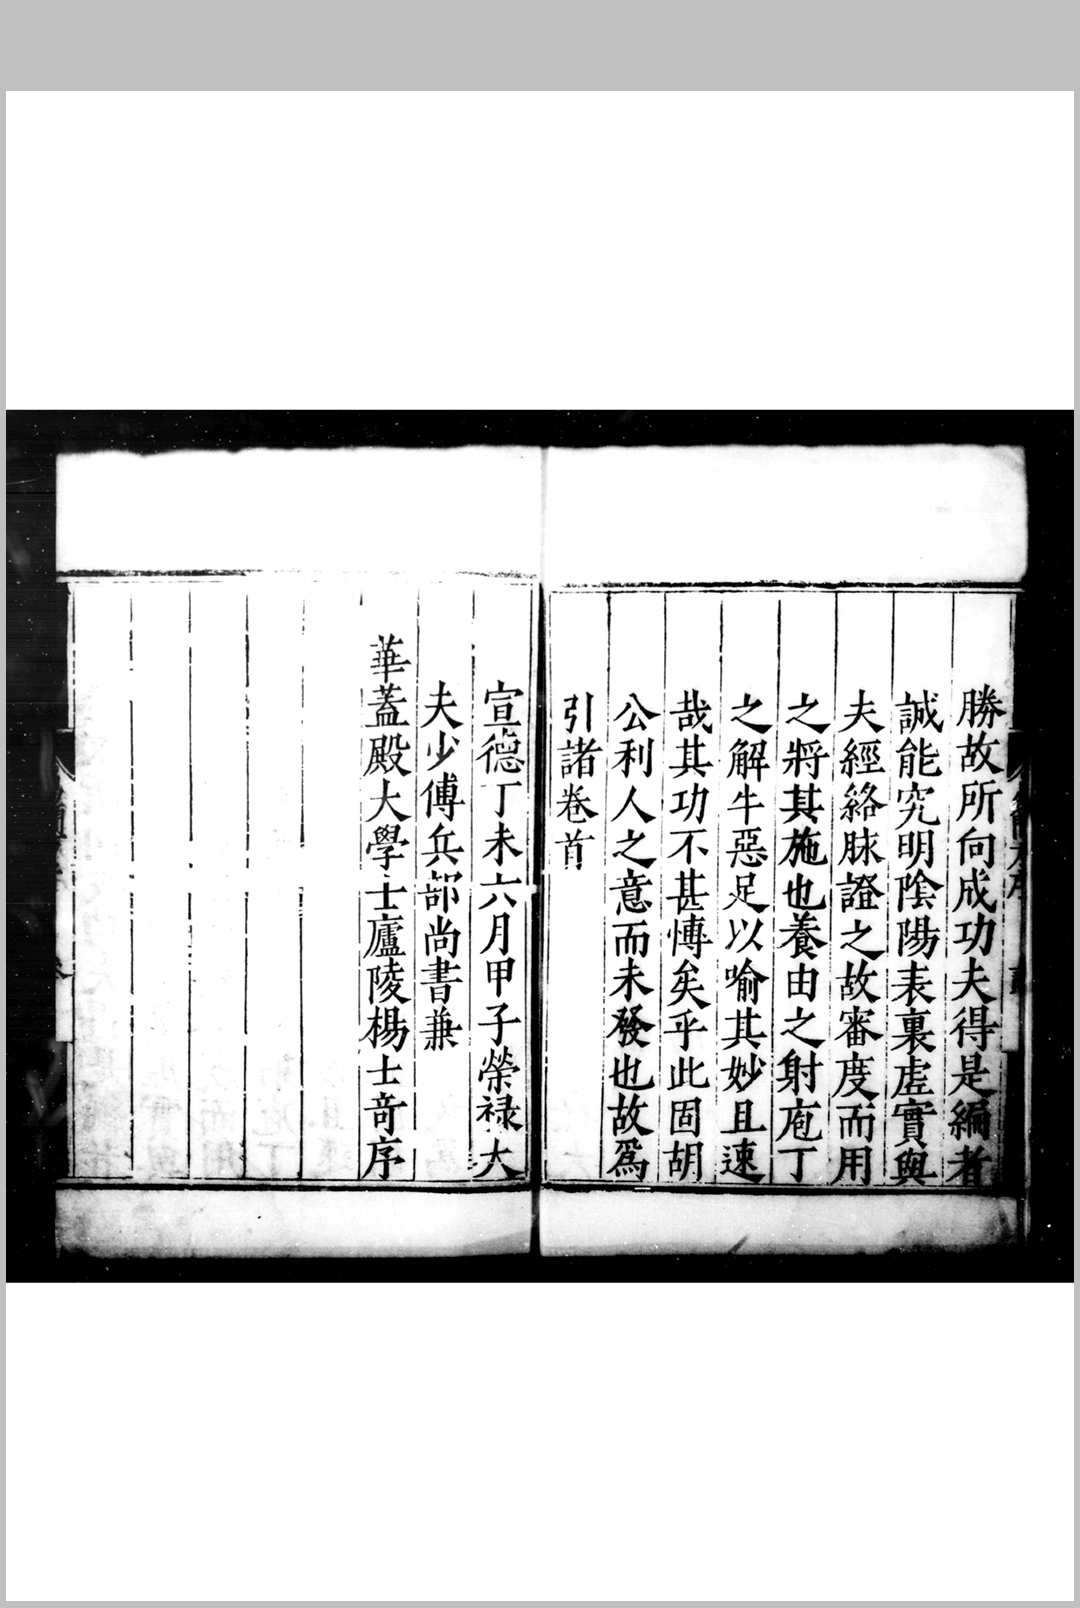 勝故所向成功夫得是編者
誠能究明陰陽表裏虛實與
夫經絡脉證之故審度而用
之將其施也養由之射庖丁
之解牛惡足以喻其妙且速
哉其功不甚慱矣乎此固胡
公利人之意而未發也故爲
引諸卷首
宣德丁未六月甲子榮禄大
夫少傅兵部尚書兼
華蓋殿大學士廬陵楊士竒序